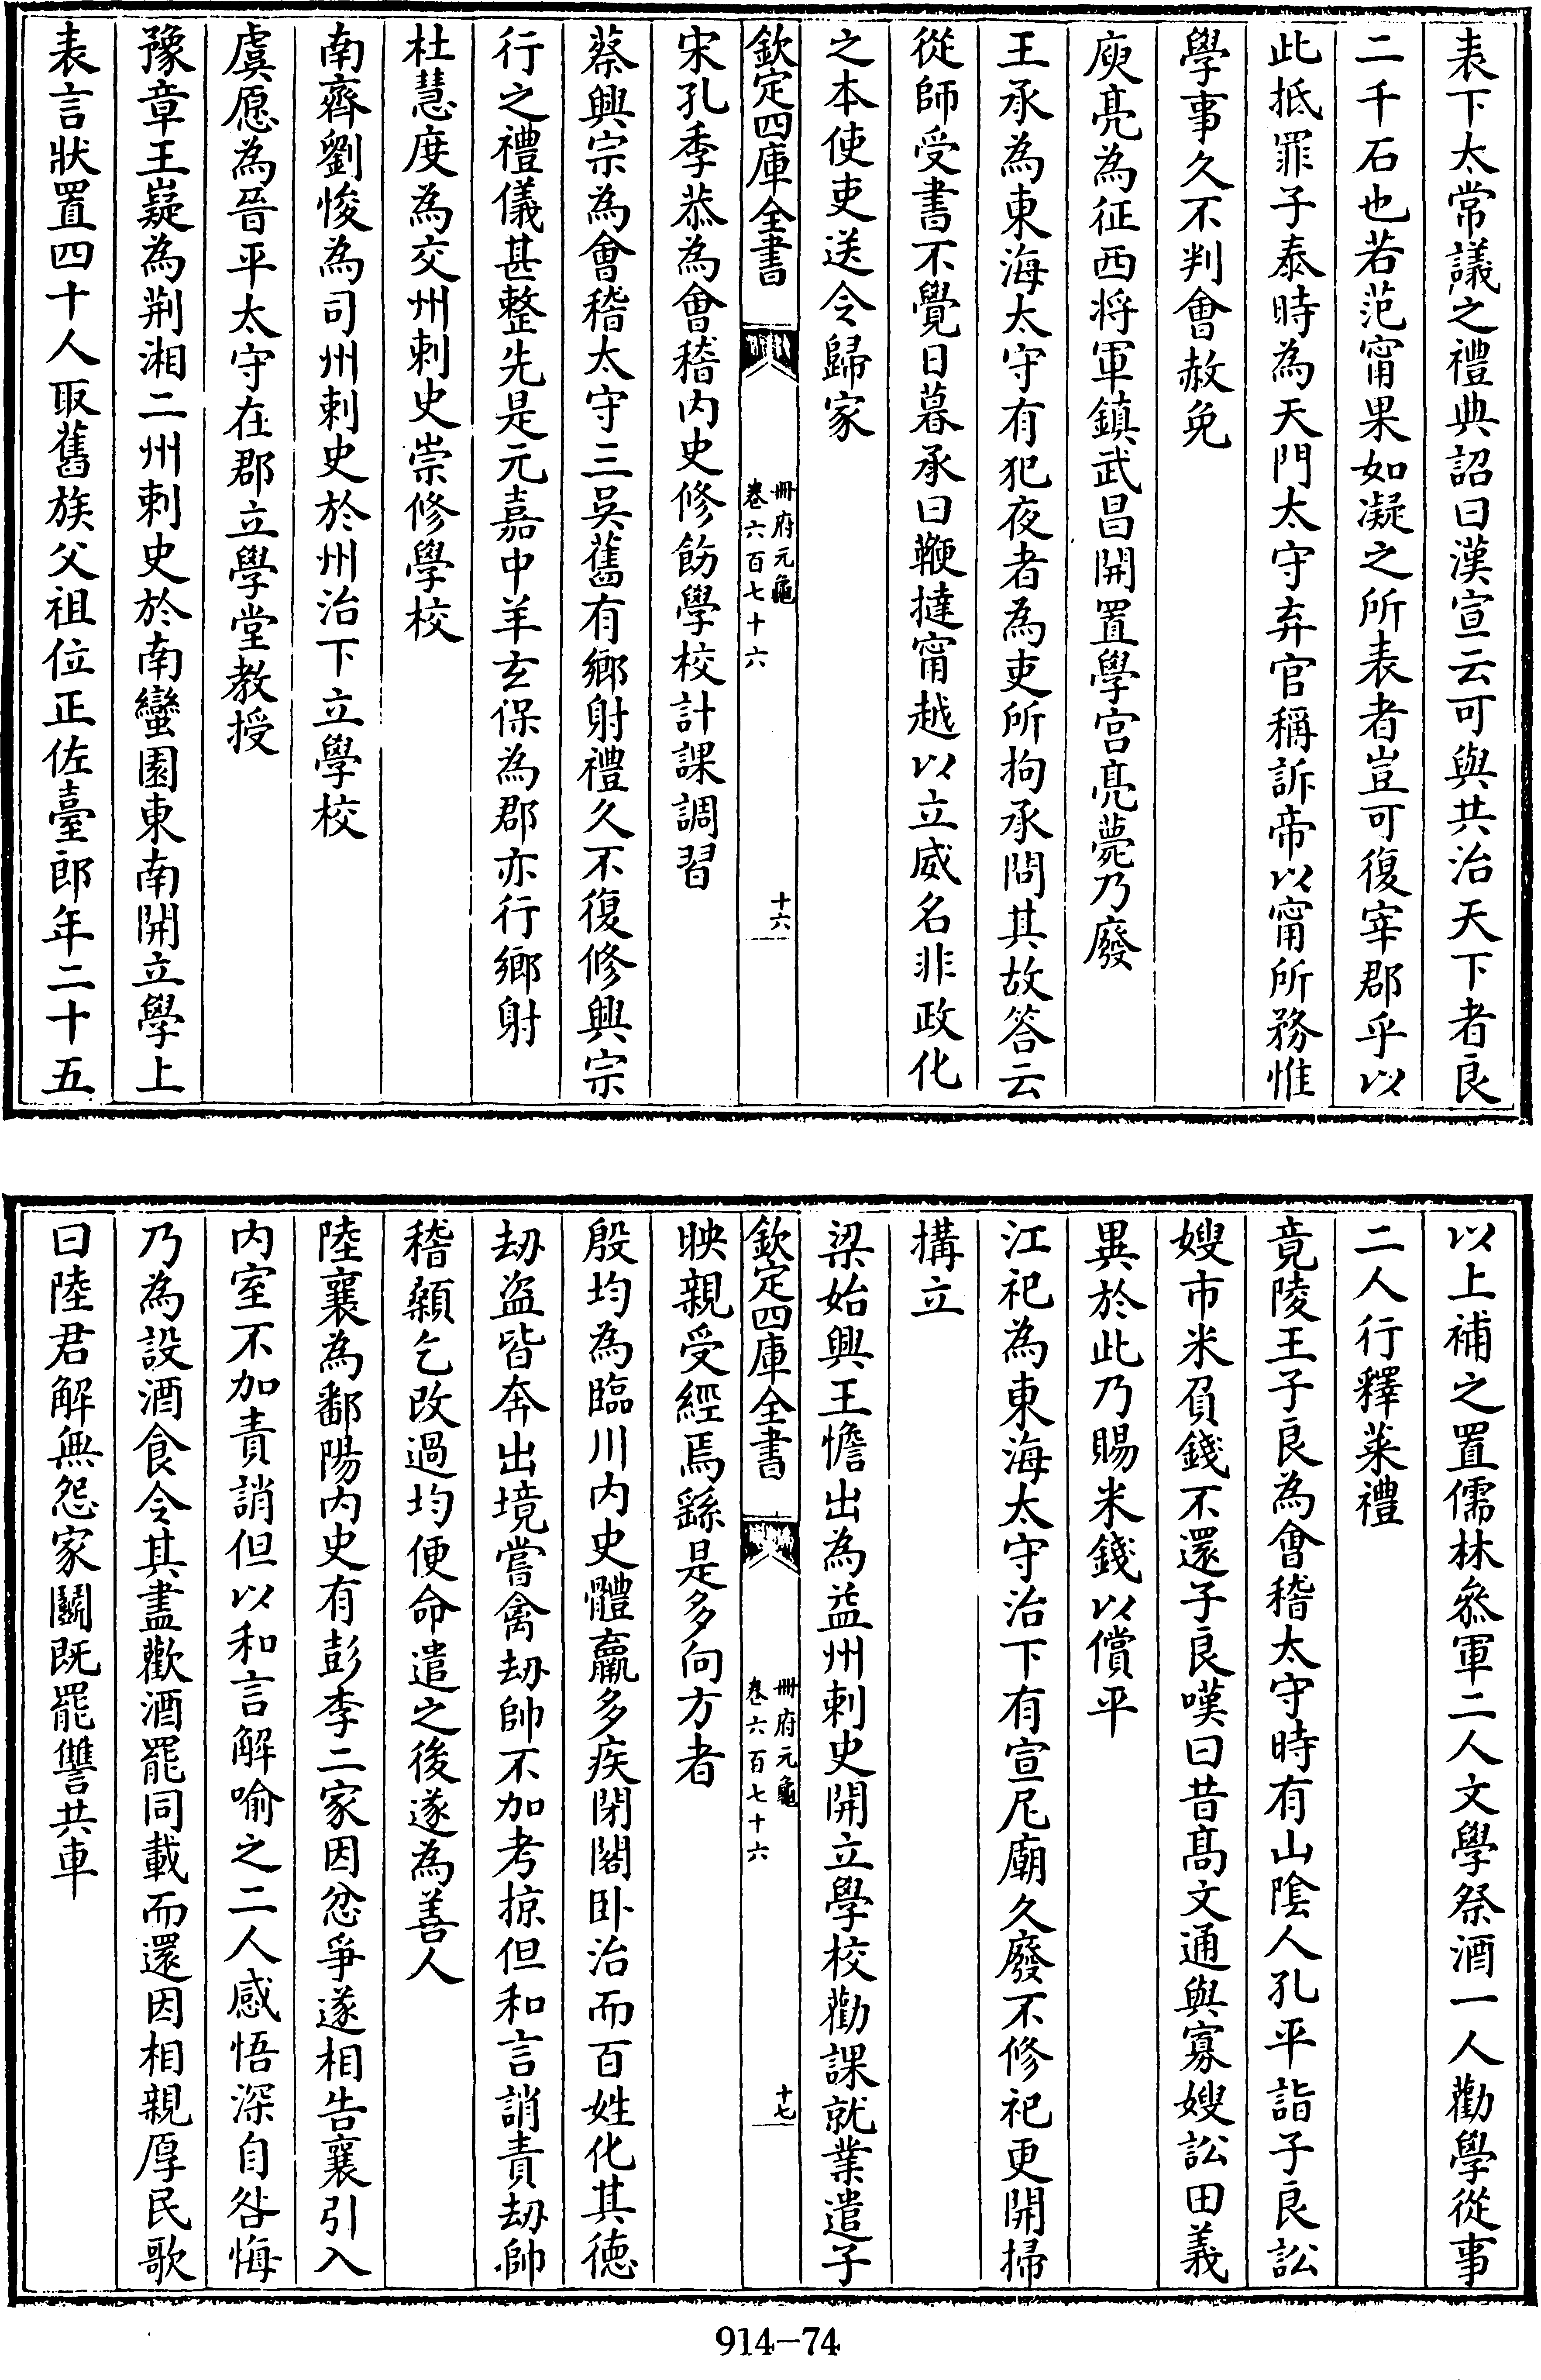 表下太常議之禮典詔曰漢宣云可與共治天下者良
二千石也若范甯果如凝之所表者豈可復宰郡乎以
此抵罪子泰時為天門太守弃官稱訴帝以甯所務惟
學事久不判會赦免
庾亮為征西將軍鎮武昌開置學宫亮薨乃廢
王承為東海太守有犯夜者為吏所拘承問其故答云
從師受書不覺日暮承曰鞭撻甯越以立威名非政化
之本使吏送令歸家
欽定四庫全書
冊府元龜
卷六百七十六
十六
宋孔季恭為會稽内史修飭學校計課調習
蔡興宗為會稽太守三吳舊有鄉射禮久不復修興宗
行之禮儀甚整先是元嘉中羊玄保為郡亦行鄉射
杜慧度為交州刺史崇修學校
南齊劉悛為司州刺史於州治下立學校
虞愿為晉平太守在郡立學堂教授
豫章王嶷為荆湘二州刺史於南蠻園東南開立學上
表言狀置四十人取舊族父祖位正佐臺郎年二十五
以上補之置儒林叅軍二人文學祭酒一人勸學從事
二人行釋菜禮
竟陵王子良為會稽太守時有山隂人孔平詣子良訟
嫂市米負錢不還子良嘆曰昔髙文通與寡嫂訟田義
異於此乃賜米錢以償平
江祀為東海太守治下有宣尼廟久廢不修祀更開掃
搆立
梁始興王憺出為益州刺史開立學校勸課就業遣子
欽定四庫全書
冊府元龜
卷六百七十六
十七
映親受經焉繇是多向方者
殷均為臨川内史體羸多疾閉閤卧治而百姓化其徳
刼盗皆奔出境嘗禽刼帥不加考掠但和言誚責刼帥
稽顙乞改過均便命遣之後遂為善人
陸襄為鄱陽内史有彭李二家因忿爭遂相告襄引入
内室不加責誚但以和言解喻之二人感悟深自咎悔
乃為設酒食令其盡歡酒罷同載而還因相親厚民歌
曰陸君解無怨家鬬既罷讐共車
914-74